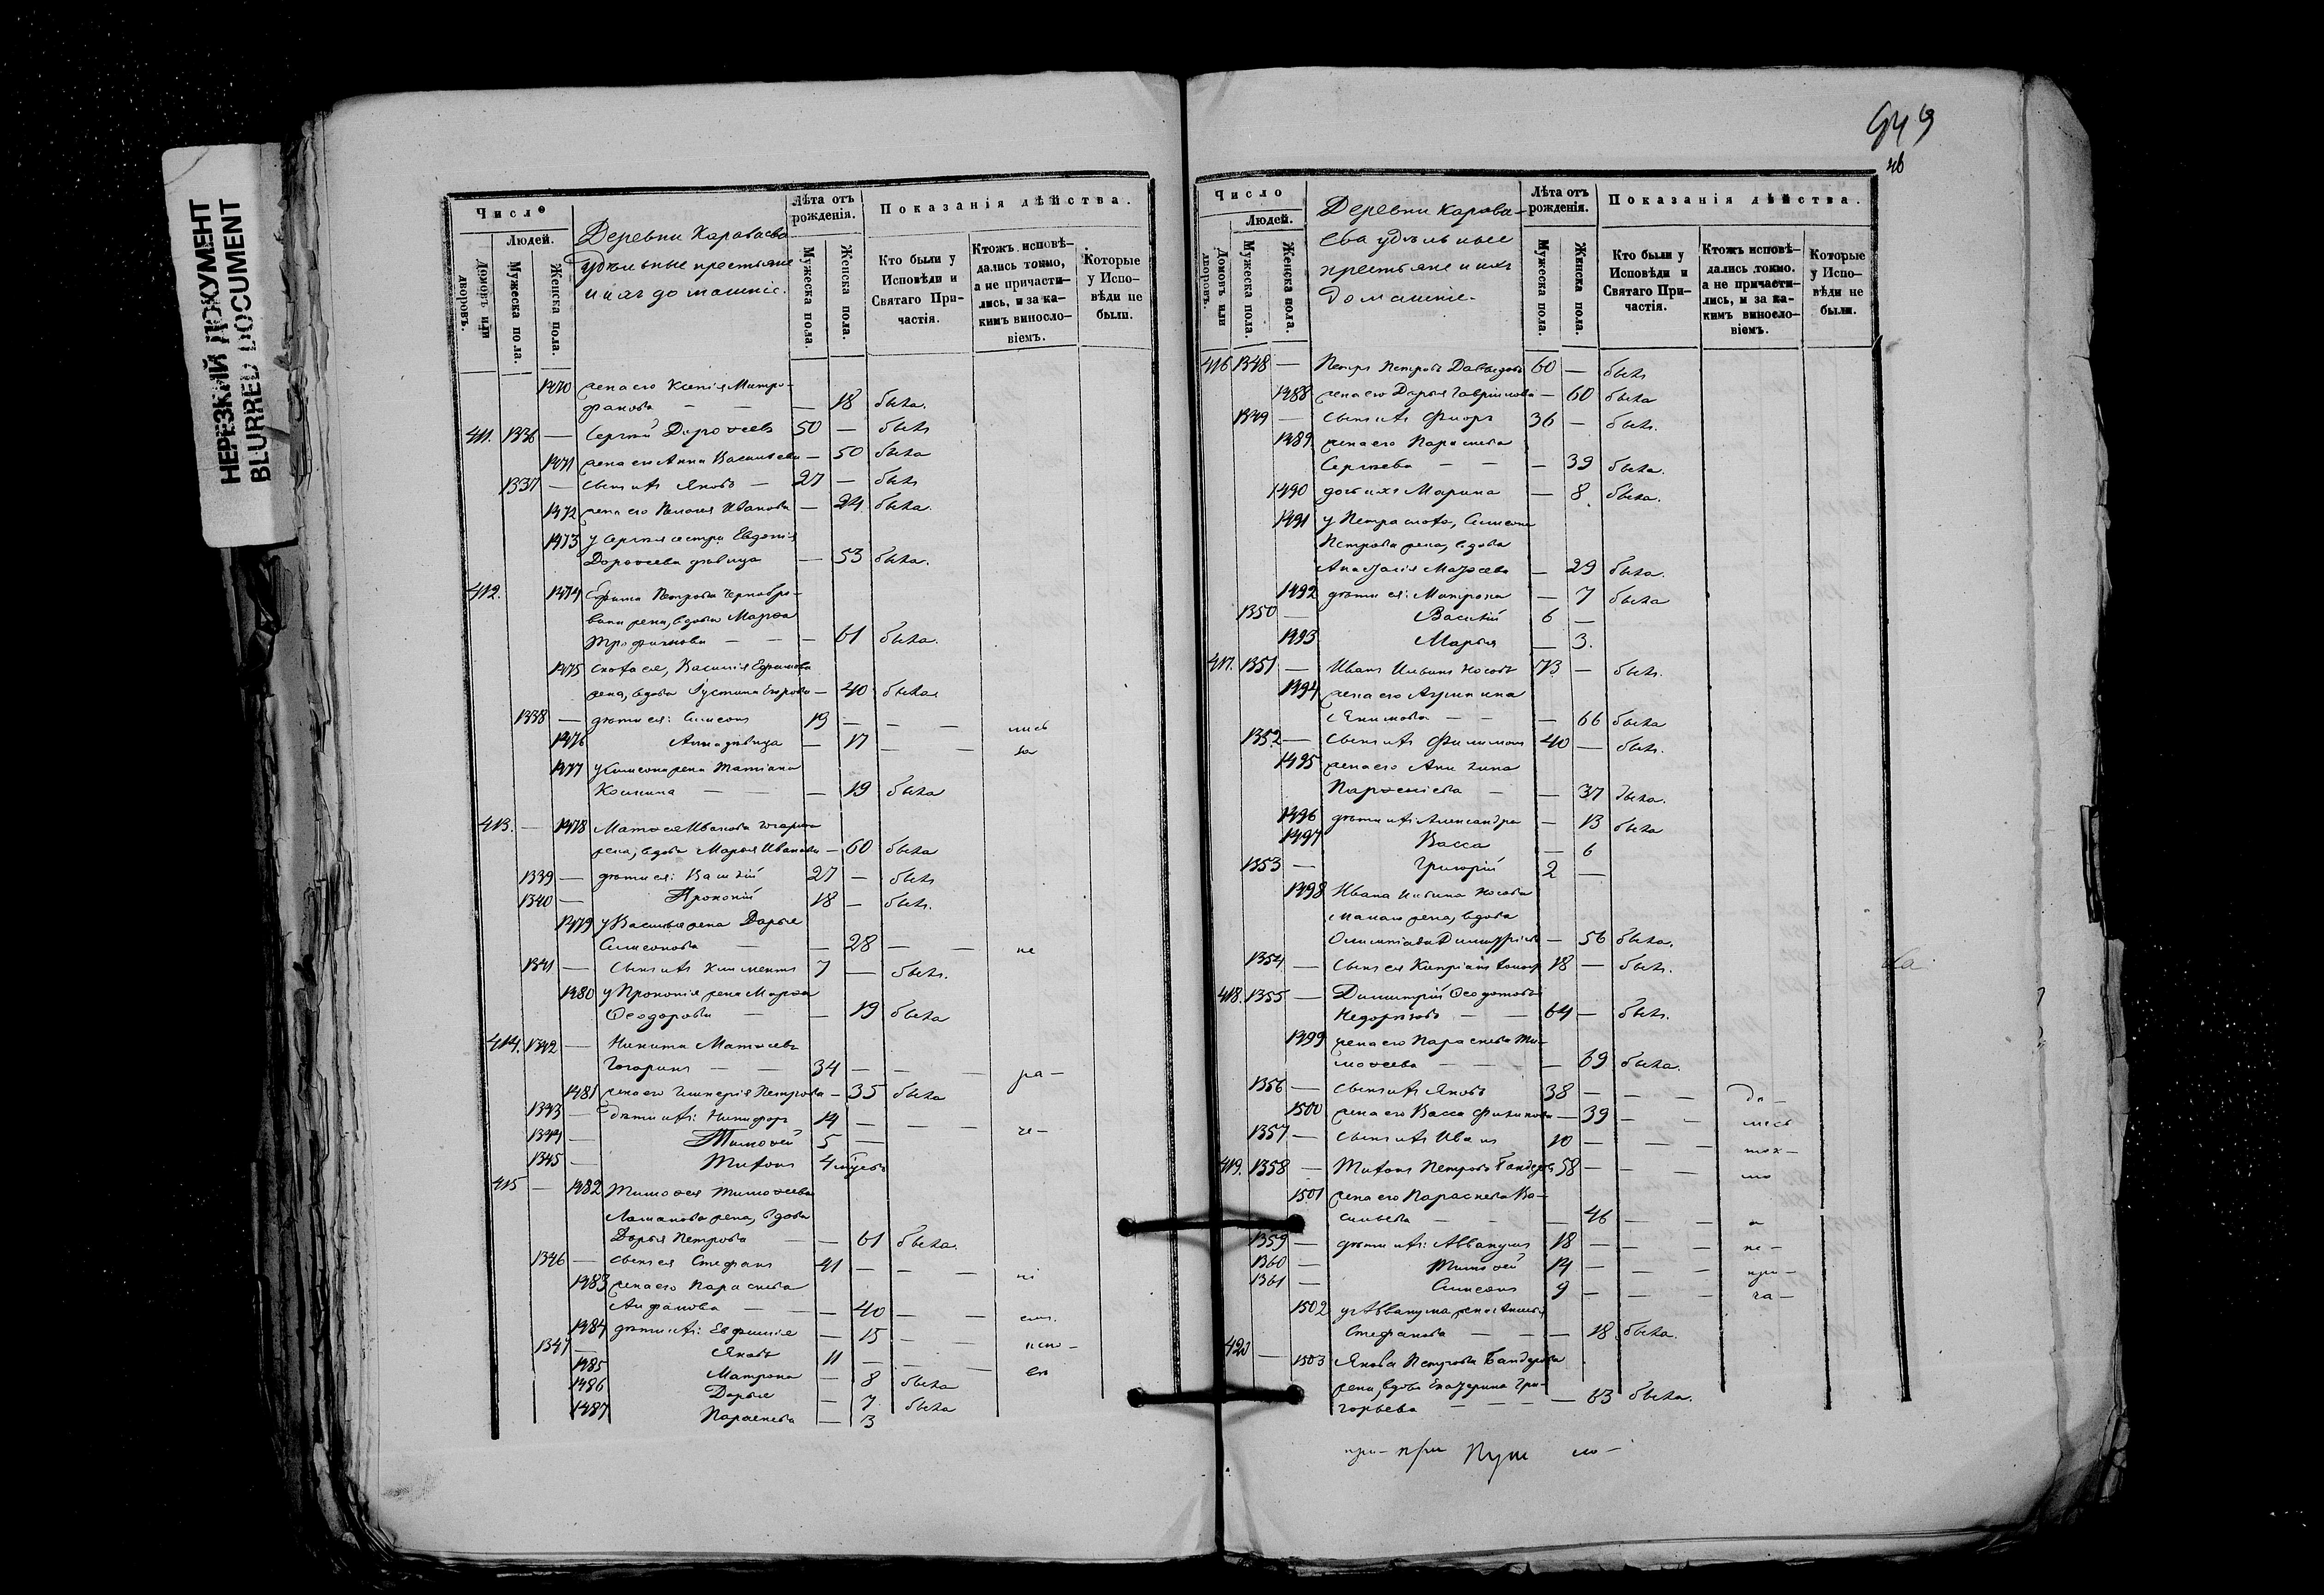 НЕРЕЗКИЙ ДОКУМЕНТ
BLURRED DOCUMENT
Число
Людей.
Домовъ или дворовъ.
Мужеска пола.
Женска пола.
Деревни Караваева
удѣльные крестьяне
и ихъ домашніе.
Лѣта отъ рожденія.
Мужеска пола.
Женска пола.
Показанія дѣйства.
Кто были у Исповѣди и Святаго Причастія.
Ктожъ исповѣдались токмо, а не причастились, и за какимъ винословіемъ.
Которые у Исповѣди не были.
1470 жена его Ксенія Митро-
фанова — — — 18 была.
411. 1336 — Сергѣй Дороѳеевъ 50 — былъ
1471 жена его Анна Васильева — 50 была
1337 — сынъ ихъ Яковъ — 27 — былъ
1472 жена его Пелагея Иванова — 24 была.
1473 у Сергѣя сестра Евдокія
Дороѳеева дѣвица — 53 была.
412. 1474 Ефима Петрова Чернобро-
вина жена, вдова Марѳа
Трофимова — — — 61 была.
1475 сноха ея, Василія Ефимова
жена, вдова Іустина Егорова — 40 была
1338 — дѣти ея: Симеонъ 19 — — — лись
1476 Анна дѣвица — 17 — — за
1477 у Симеона жена Татіана
Космина — — — 19 была
413. — 1478 Матѳея Иванова Гогарина
жена, вдова Марья Иванова — 60 была
1339 — дѣти ея: Василій 27 — былъ
1340 — Прокопій 18 — былъ.
1479 у Василья жена Дарья
Симеонова — — 28 — — не
1341 — сынъ ихъ Климентъ 7 — былъ.
1480 у Прокопія жена Марѳа
Ѳеодорова — — 19 была
414. 1342 — Никита Матѳеевъ
Гогаринъ — — 34 — — — ра-
1481 жена его Гликерія Петрова — 35 была
1343 — дѣти ихъ: Никифоръ 14 — — — че-
1344 — Тимоѳей 5 —
1345 — Титонъ 4 мѣсяц
415 — 1482 Тимоѳея Тимоѳеева
Ломанова жена, вдова
Дарья Петрова — — 61 была.
1346 — сынъ ея Стефанъ 41 — — — ні
1483 жена его Параскева
Анфанова — — — 40 — — ем.
1484 дѣти ихъ: Евфимія — 15 — — испо-
1347 — Яковъ 11 — — —
1485 Матрона — 8 была
1486 Дарья — 7 была
1487 Параскева — 3
949
Число
Людей.
Домовъ или дворовъ.
Мужеска пола.
Женска пола.
Деревни Карава-
ева удѣльные
крестьяне и ихъ
домашніе.
Лѣта отъ рожденія.
Мужеска пола.
Женска пола.
Показанія дѣйства.
Кто были у Исповѣди и Святаго Причастія.
Ктожъ исповѣдались токмо. а не причастились, и за какимъ винословіемъ.
Которые у Исповѣди не были.
416 1348 — Петръ Петровъ Давыдовъ 60 — былъ
1488 жена его Дарья Гаврилова — 60 была
1349 — сынъ ихъ Флоръ 36 — былъ.
1489 жена его Параскева
Сергѣева — — — 39 была.
1490 дочь ихъ Марина — 8 была.
1491 у Петра сноха, Симеона
Петрова жена, вдова
Анастасія Матѳеева — 29 была.
1492 дѣти ея: Матрона — 7 была
1350 — Василій 6 —
1493 Марья — 3.
417. 1351 — Иванъ Ильинъ Носовъ 73 — былъ.
1494 жена его Акулина
Екимова — — — 66 была
1352 — сынъ ихъ Филимонъ 40 — былъ.
1495 жена его Акилина
Парѳеніева — — 37 была.
1496 дѣти ихъ Александра — 13 была
1497 Васса — 6
1353 — Григорій 2 —
1498 Ивана Ильина Носова
жена, вдова
Олимпіада Димитріева — 56 была.
1354 — сынъ ея Кипріанъ 18 — былъ.
418. 1355 — Димитрій Ѳеодотовъ
— — 64 — былъ.
1499 жена его Параскева Ти-
моѳеева — — — 69 была.
1356 — сынъ ихъ Яковъ 38 — — — да-
1500 жена его Васса Филипова — 39 — — лись
1357 — сынъ ихъ Иванъ 10 — — — ток-
419. 1358 — Титонъ Петровъ 58 — — — мо
1501 жена его Параскева Ва-
сильева — — — 46 — — а
1359 — дѣти ихъ: Аввакумъ 18 — — — не-
1360 — Тимоѳей 14 — — — при-
1361 — Симеонъ 9 — — — ча-
1502 у Аввакума жена
Стефанова — — — 18 была.
420 — 1503 Якова Петрова
жена, вдова Екатерина Гри-
горьева — — — — 63 была.